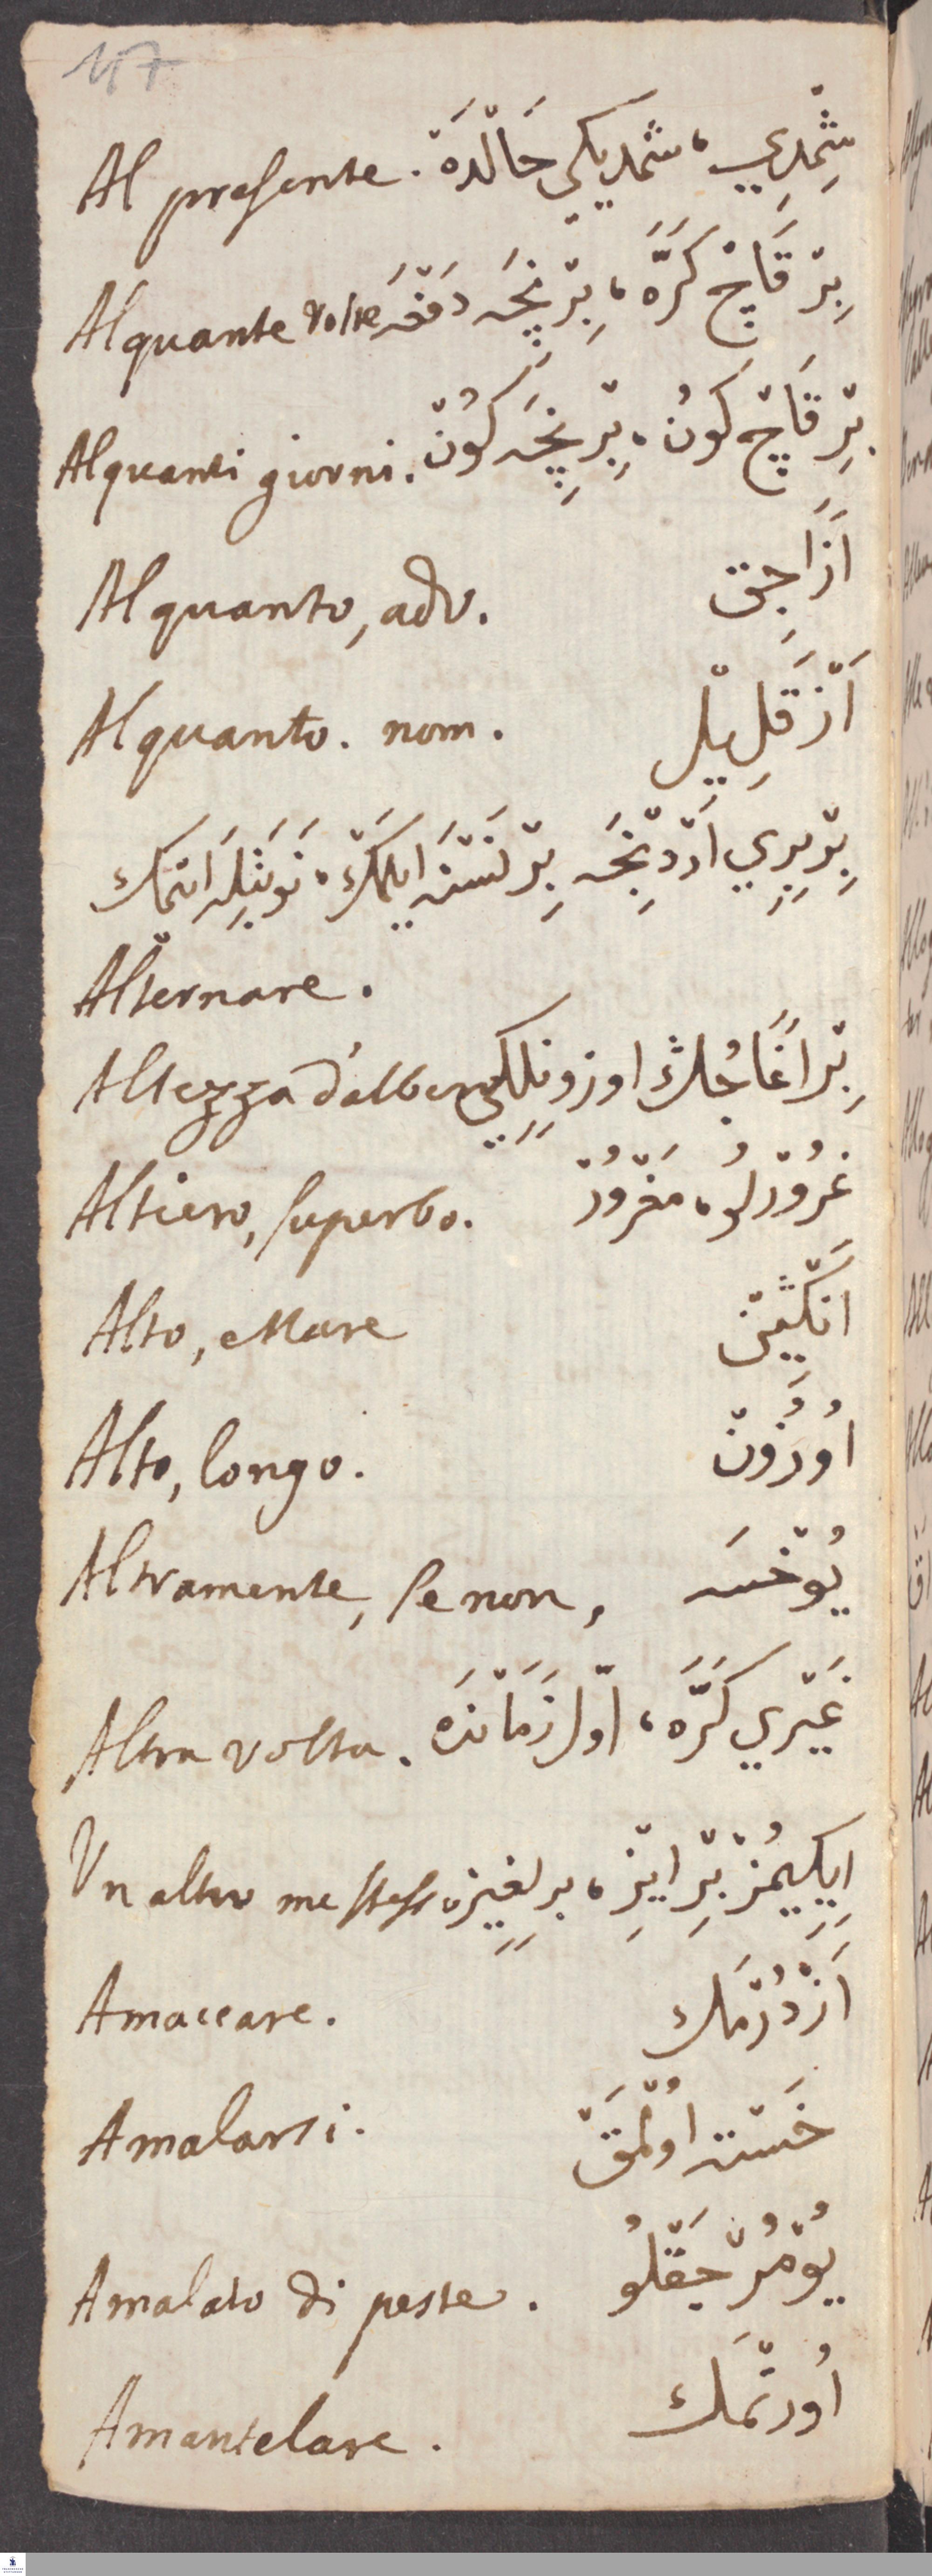 47
Al presente. شِمْدِي، شمديكي حَالْدَهْ
Alquante volte بِرْ قَاچْ كَرَّه، بِرْ نِيچَه دَفْعَه
Alquanti giorni. بِرْ قَاچْ كُونْ، بِرْ نِيچَه كُونْ
Alquanto, adv. اَزَاجِق
Alquanto. nom. اَزْ قَلِيلْ
بِرْ بِرِي اَرْدِنْجَه بِرْ نَسْنَه ايلَمَكْ، نَوبَتِلَه اتمَك
Alternare.
Altezza d'albero بِرْ اَغَاجُكْ اوزونلِكِي
Altiero, superbo. غُرُورْلُو، مَغْرُورْ
Alto, Mare اَنْكِينْ
Alto, longo. اُوزُونْ
Altramente, se non, يُوخْسَه
Altra volta. غَيْرِي كَرَّه، اوّل زَمَانْدَه
Un altro me stesso ايكيمُزْ بِرْ ايزْ، بر
Amaccare. اَزْدُرْمَك
Amalarsi. خَسْتَه اُولْمَقْ
Amalato di peste. يُومُرْجَقْلُو
Amantelare. اُورتْمَك